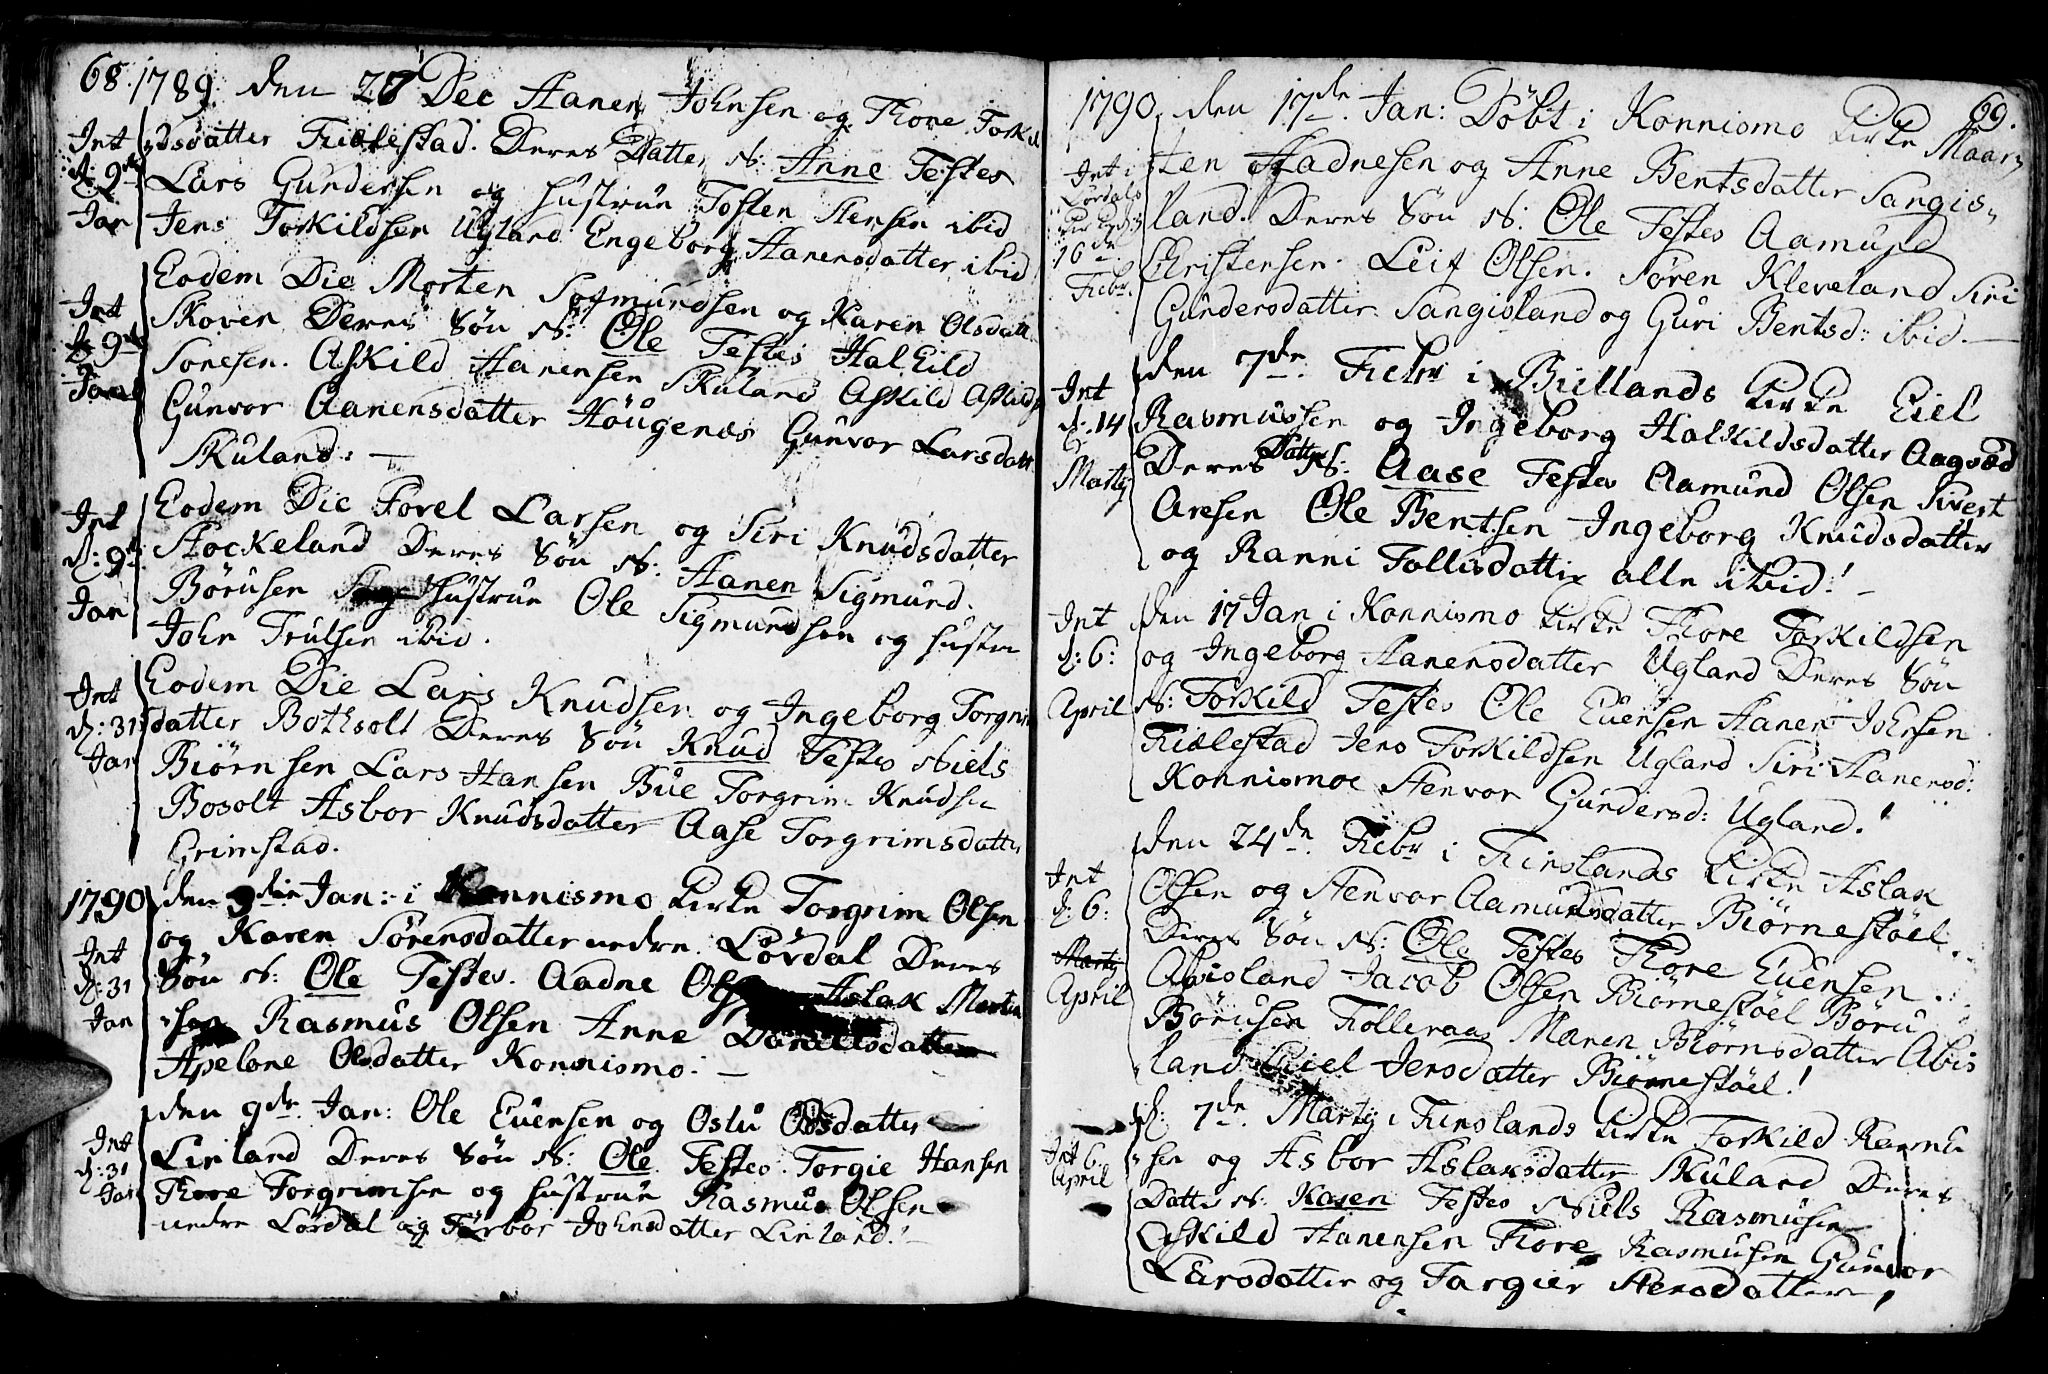 68. 1789. den 27 Dec Aanen Johnsen og Thore Torkil
Int dsdatter Fielestad. Deres Datter N: Anne Testes
d: 9de Lars Gundersen og Hustrue Tosten Stensen ibid
Jan Jens Torkildsen Ugland Engeborg Aanensdatter ibid
Eodem Die Morten Sigmundsen og Karen Olsdatt
Int Skoven Deres Søn N: Ole Testes Halkild
d: 9de Sonesen. Askild Aanensen Skuland Askild Askilds
Gunvor Aanensdatter Höugenes Gunvor Larsdatt
Skuland. —
Int Eodem Die Torel Larsen og Siri Knudsdatter
d: 9de Stockeland Deres Søn N: Aanen Sigmund
Jan Börusen Hustrue Ole Sigmundsen og Hustru
John Trulsen ibid.
Int Eodem Die Lars Knudsen og Ingeborg Torgrim
d: 31 datter Bothsolt Deres Søn Knud Testes Niels
Jan Biörnsen Lars Hansen Büe Torgrim Knudsen
Bosolt Asbor Knudsdatter Aase Torgrimsdatter
Grimstad.
1790 den 3die Jan: i Konnismo kirke Torgrim Olsen
Int og Karen Sörensdatter nedre Lördal Deres
d: 31 Søn N: Ole Testes. Aadne Olsen Aslak Morten
Jan sen Rasmus Olsen Anne Danielsdatter
Apelone Olsdatter Konnismo. —
den 9de Jan: Ole Evensen og Oslu Olsdatter
Int Linland Deres Søn N: Ole Testes Torgie Hansen
d: 31 Thore Torgrimsen og Hustrue Rasmus Olsen
Jan nedre Lördal og Torbor Johnsdatter Linland. —
1790. den 17de Jan: Döbt i Konnismo kirke Maar 69.
Int i ten Aadnesen og Anne Bentsdatter Sangis
Lördals land. Deres Søn N: Ole Testes Aamund
16de Christensen. Leif Olsen. Sören Kleveland Siri
Febr. Gundersdatter Sangisland og Guri Bentsd: ibid. —
den 7de Febr i Biellands kirke Eiel
Int Rasmussen og Ingeborg Halkildsdatter Aagsæd
d: 14 Deres Datter N: Aase Testes Aamund Olsen Sivert
Martj Aresen Ole Bentsen Ingeborg Knudsdatter
og Ranni Tollisdatter alle ibid! —
Int den 17 Jan i Konnismo kirke Thore Torkildsen
d: 6: og Ingeborg Aanensdatter Ugland Deres Søn
April N: Torkild Testes Ole Evensen Aanen Johnsen
Fielestad Jens Torkildsen Ugland Siri Aanensd:
Konnismoe Stenvor Gundersd: Ugland.
den 24de Febr i Finslands kirke Aslak
Int Olsen og Stenvor Aamundsdatter Biörnestöel
d: 6: Deres Søn N: Ole Testes Thore Evensen
Martj Abisland Jacob Olsen Biörnestöel Böru
April Börusen Folleraas Maren Biörnsdatter Abis
land Eiel Jensdatter Biörnestöel!
d: 7de Martj i Finslands kirke Torkild Rasmu
Int 6 sen og Asbor Aslaksdatter Skuland Deres
April Datter N: Karen Testes Niels Rasmusen
Askild Aanensen Thore Rasmusen Gunvor
Larsdatter og Targier Stensdatter